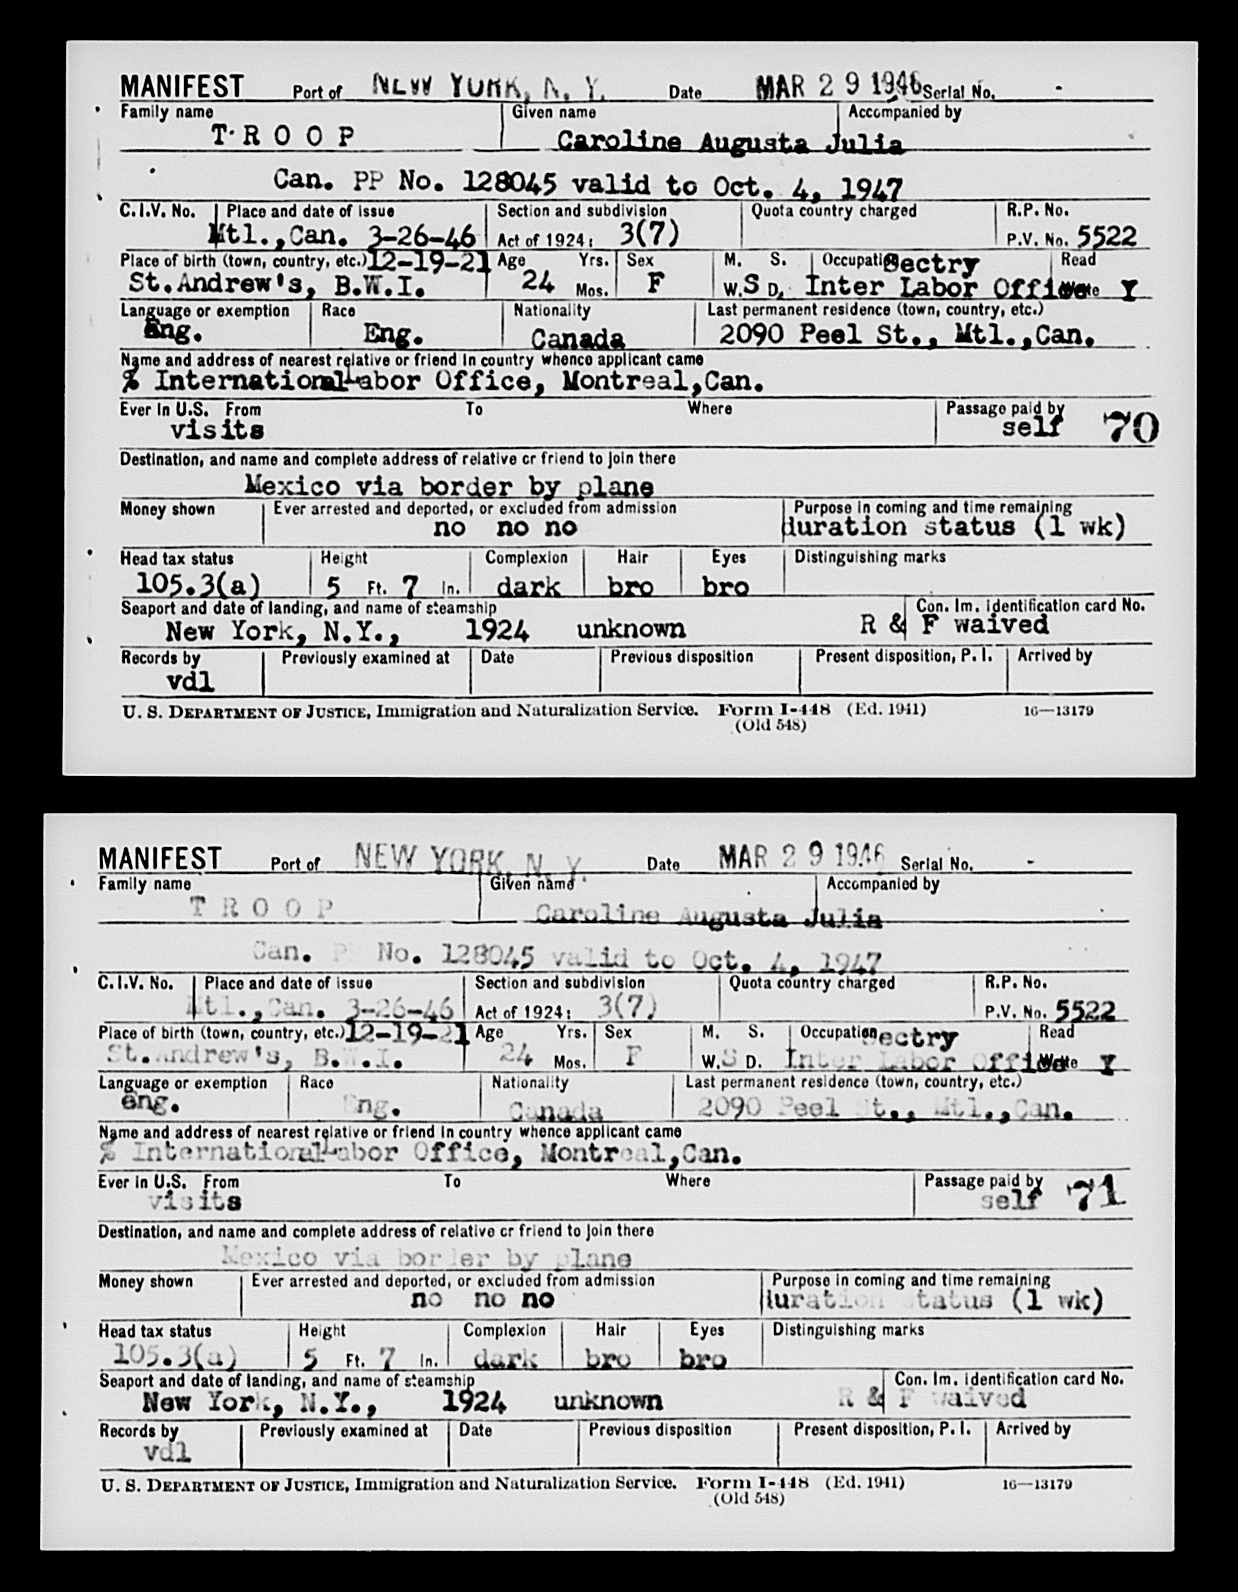 MANIFEST Port of NEW YORK, N. Y. Date MAR 29 1946 Serial No. -
Family name Given name Accompanied by
T R O O P Caroline Augusta Julia
Can. PP No. 128045 valid to Oct. 4, 1947
C.I.V. No. Place and date of issue Section and subdivision Quota country charged R.P. No.
Mtl.,Can. 3-26-46 Act of 1924: 3(7) P.V. No. 5522
Place of birth (town, country, etc.) 12-19-21 Age Yrs. Sex M. S. Occupation Sectry Read
St.Andrew's, B.W.I. 24 Mos. F W. S D. Inter Labor Office Write Y
Language or exemption Race Nationality Last permanent residence (town, country, etc.)
Eng. Eng. Canada 2090 Peel St., Mtl.,Can.
Name and address of nearest relative or friend in country whence applicant came
% International Labor Office, Montreal,Can.
Ever in U.S. From To Where Passage paid by
visits self 70
Destination, and name and complete address of relative or friend to join there
Mexico via border by plane
Money shown Ever arrested and deported, or excluded from admission Purpose in coming and time remaining
no no no duration status (1 wk)
Head tax status Height Complexion Hair Eyes Distinguishing marks
105.3(a) 5 Ft. 7 In. dark bro bro
Seaport and date of landing, and name of steamship Con. Im. identification card No.
New York, N.Y., 1924 unknown R & F waived
Records by Previously examined at Date Previous disposition Present disposition, P. I. Arrived by
vdl
U. S. DEPARTMENT OF JUSTICE, Immigration and Naturalization Service. Form I-448 (Ed. 1941) 16—13179
(Old 548)
MANIFEST Port of NEW YORK, N. Y. Date MAR 29 1946 Serial No. -
Family name Given name Accompanied by
T R O O P Caroline Augusta Julia
Can. P No. 128045 valid to Oct. 4, 1947
C.I.V. No. Place and date of issue Section and subdivision Quota country charged R.P. No.
Mtl.,Can. 3-26-46 Act of 1924: 3(7) P.V. No. 5522
Place of birth (town, country, etc.) 12-19-21 Age Yrs. Sex M. S. Occupation Sectry Read
St.Andrew's, B.W.I. 24 Mos. F W. S D. Inter Labor Office Write Y
Language or exemption Race Nationality Last permanent residence (town, country, etc.)
eng. Eng. Canada 2090 Peel St., Mtl.,Can.
Name and address of nearest relative or friend in country whence applicant came
% International Labor Office, Montreal,Can.
Ever in U.S. From To Where Passage paid by
visits self 71
Destination, and name and complete address of relative or friend to join there
Mexico via border by plane
Money shown Ever arrested and deported, or excluded from admission Purpose in coming and time remaining
no no no duration status (1 wk)
Head tax status Height Complexion Hair Eyes Distinguishing marks
105.3(a) 5 Ft. 7 In. dark bro bro
Seaport and date of landing, and name of steamship Con. Im. identification card No.
New York, N.Y., 1924 unknown R & F waived
Records by Previously examined at Date Previous disposition Present disposition, P. I. Arrived by
vdl
U. S. DEPARTMENT OF JUSTICE, Immigration and Naturalization Service. Form I-448 (Ed. 1941) 16—13179
(Old 548)